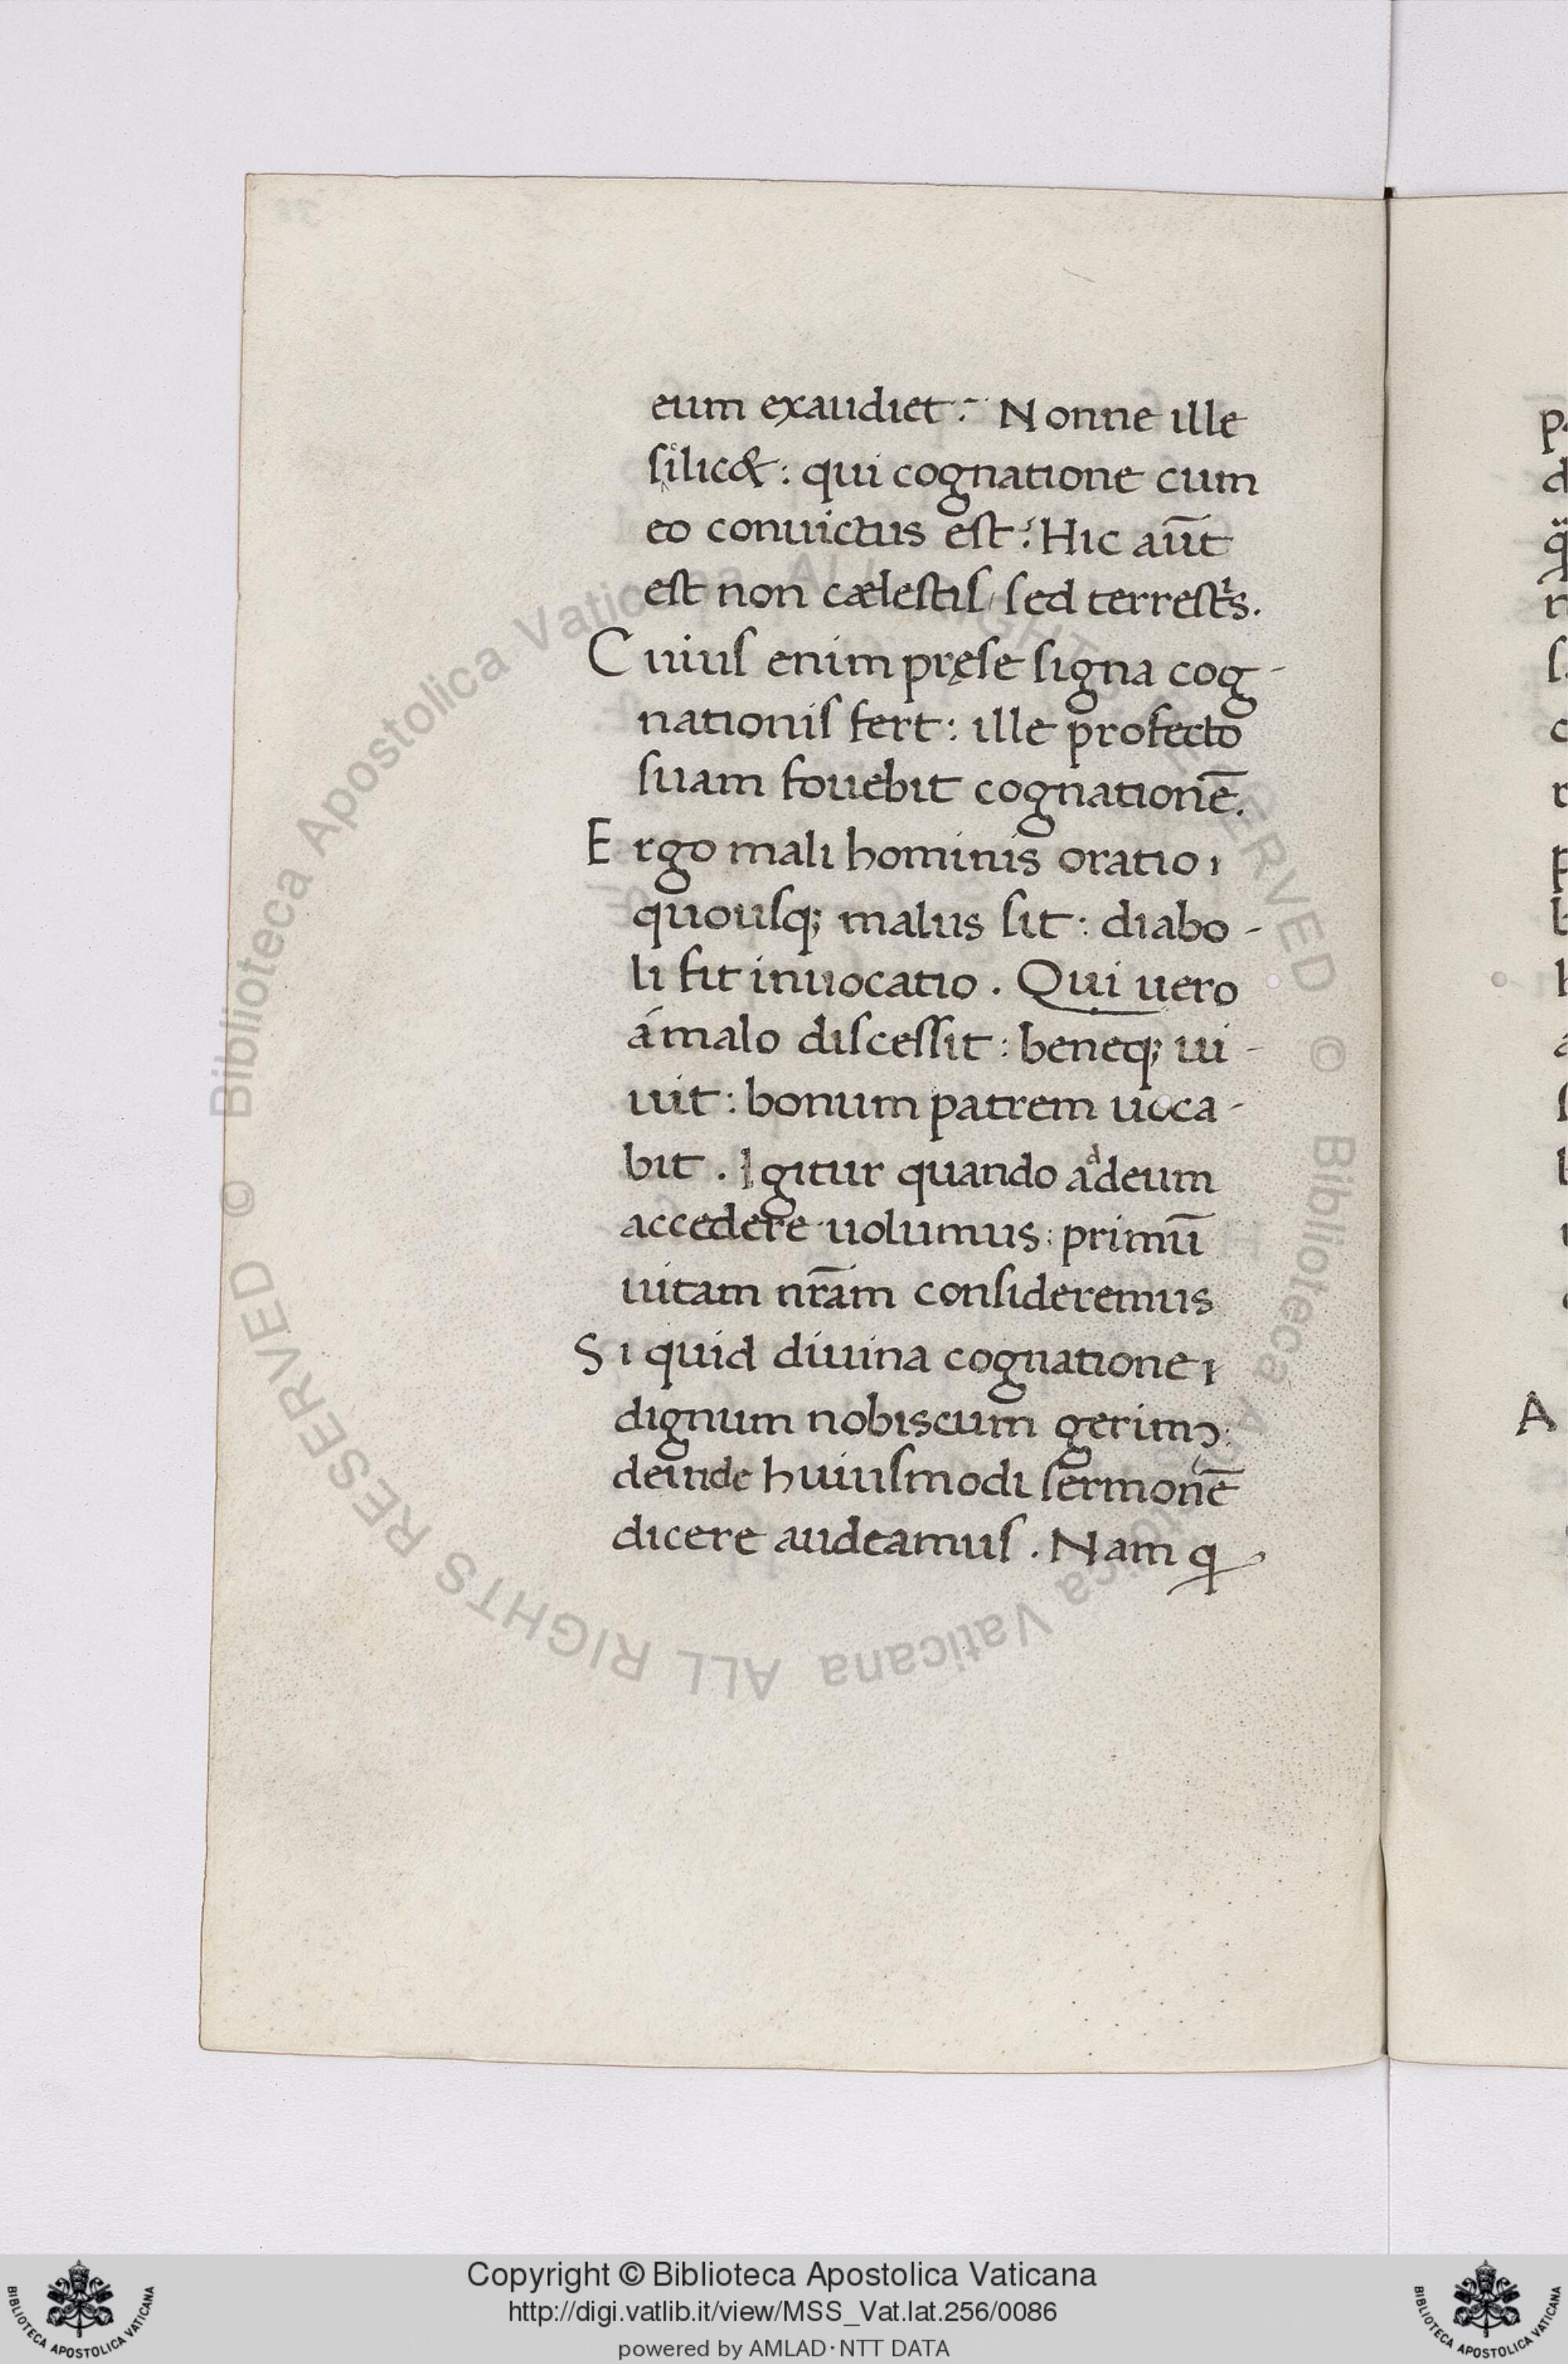 eum exaudiet? Nonne ille
silic&: qui cognatione cum
eo conuictus est? Hic aūt
est non cælestis, sed terrestͥs.
Cuius enim pręse signa cog-
nationis fert: ille profecto
suam fouebit cognationē.
Ergo mali hominis oratio,
quousq; malus sit: diabo-
li fit inuocatio. Qui uero
á malo discessit: beneq; ui-
uit: bonum patrem uoca-
bit. Igitur quando aͩ deum
accedere uolumus: primū
uitam nr̄am consideremus
Si quid diuina cognatione,
dignum nobiscum gerimꝰ:
deinde huiusmodi sermonē
dicere audeamus. Nam ꝙ
A
© Biblioteca Apostolica Vaticana ALL RIGHTS RESERVED © Biblioteca Apostolica Vaticana ALL RIGHTS RESERVED
Copyright © Biblioteca Apostolica Vaticana
http://digi.vatlib.it/view/MSS_Vat.lat.256/0086
powered by AMLAD·NTT DATA
BIBLIOTECA APOSTOLICA VATICANA
BIBLIOTECA APOSTOLICA VATICANA